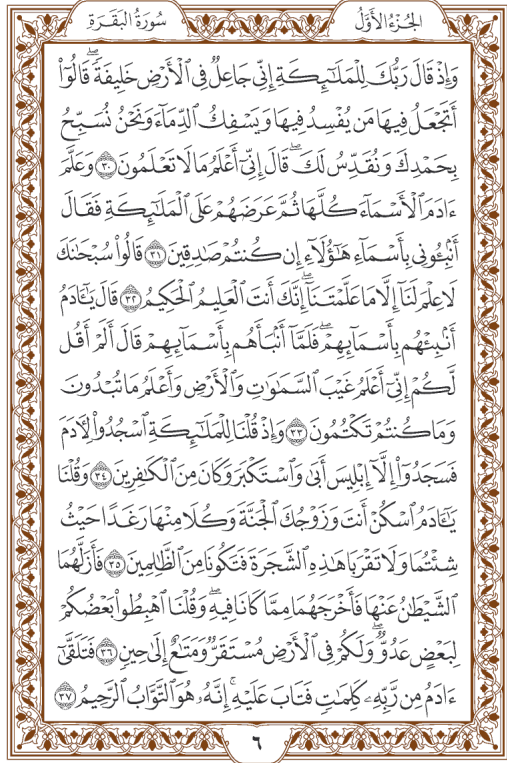 سُورَةُ البَقَرَةِ
الجُزءُ الأَوَّلُ
وَإِذْ قَالَ رَبُّكَ لِلْمَلَٰٓئِكَةِ إِنِّي جَاعِلٌ فِي ٱلْأَرْضِ خَلِيفَةً ۖ قَالُوٓا۟
أَتَجْعَلُ فِيهَا مَن يُفْسِدُ فِيهَا وَيَسْفِكُ ٱلدِّمَآءَ وَنَحْنُ نُسَبِّحُ
بِحَمْدِكَ وَنُقَدِّسُ لَكَ ۖ قَالَ إِنِّيٓ أَعْلَمُ مَا لَا تَعْلَمُونَ ٣٠ وَعَلَّمَ
ءَادَمَ ٱلْأَسْمَآءَ كُلَّهَا ثُمَّ عَرَضَهُمْ عَلَى ٱلْمَلَٰٓئِكَةِ فَقَالَ
أَنۢبِـُٔونِي بِأَسْمَآءِ هَٰٓؤُلَآءِ إِن كُنتُمْ صَٰدِقِينَ ٣١ قَالُوا۟ سُبْحَٰنَكَ
لَا عِلْمَ لَنَآ إِلَّا مَا عَلَّمْتَنَآ ۖ إِنَّكَ أَنتَ ٱلْعَلِيمُ ٱلْحَكِيمُ ٣٢ قَالَ يَٰٓـَٔادَمُ
أَنۢبِئْهُم بِأَسْمَآئِهِمْ ۖ فَلَمَّآ أَنۢبَأَهُم بِأَسْمَآئِهِمْ قَالَ أَلَمْ أَقُل
لَّكُمْ إِنِّيٓ أَعْلَمُ غَيْبَ ٱلسَّمَٰوَٰتِ وَٱلْأَرْضِ وَأَعْلَمُ مَا تُبْدُونَ
وَمَا كُنتُمْ تَكْتُمُونَ ٣٣ وَإِذْ قُلْنَا لِلْمَلَٰٓئِكَةِ ٱسْجُدُوا۟ لِـَٔادَمَ
فَسَجَدُوٓا۟ إِلَّآ إِبْلِيسَ أَبَىٰ وَٱسْتَكْبَرَ وَكَانَ مِنَ ٱلْكَٰفِرِينَ ٣٤ وَقُلْنَا
يَٰٓـَٔادَمُ ٱسْكُنْ أَنتَ وَزَوْجُكَ ٱلْجَنَّةَ وَكُلَا مِنْهَا رَغَدًا حَيْثُ
شِئْتُمَا وَلَا تَقْرَبَا هَٰذِهِ ٱلشَّجَرَةَ فَتَكُونَا مِنَ ٱلظَّٰلِمِينَ ٣٥ فَأَزَلَّهُمَا
ٱلشَّيْطَٰنُ عَنْهَا فَأَخْرَجَهُمَا مِمَّا كَانَا فِيهِ ۖ وَقُلْنَا ٱهْبِطُوا۟ بَعْضُكُمْ
لِبَعْضٍ عَدُوٌّ ۖ وَلَكُمْ فِي ٱلْأَرْضِ مُسْتَقَرٌّ وَمَتَٰعٌ إِلَىٰ حِينٍ ٣٦ فَتَلَقَّىٰٓ
ءَادَمُ مِن رَّبِّهِۦ كَلِمَٰتٍ فَتَابَ عَلَيْهِ ۚ إِنَّهُۥ هُوَ ٱلتَّوَّابُ ٱلرَّحِيمُ ٣٧
٦